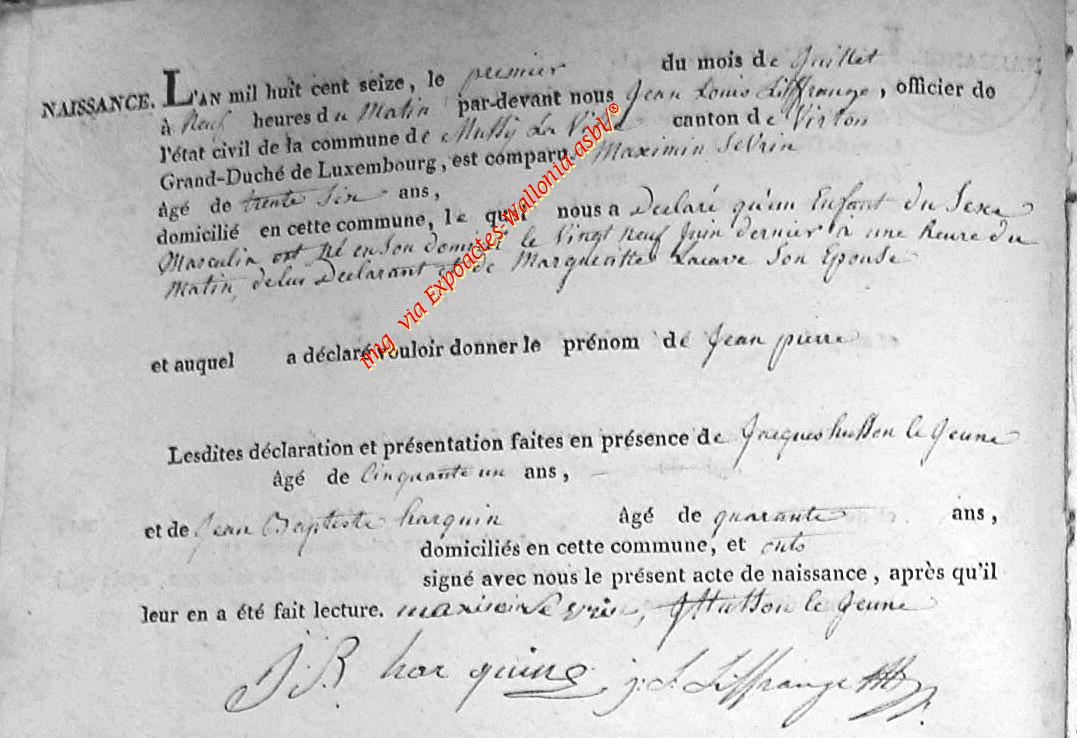 NAISSANCE. L'AN mil huit cent seize, le premier du mois de Juillet
à Neuf heures du Matin par-devant nous Jean Louis Liffrange, officier de
l'état civil de la commune de Mussy La Ville canton de Virton
Grand-Duché de Luxembourg, est comparu Maximin Sevrin
âgé de trente Six ans,
domicilié en cette commune, le quel nous a Declaré qu'un Enfant du Sexe
Masculin est Né en Son domicile le Vingt neuf Juin dernier a une heure du
Matin, de lui Declarant et de Margueritte Lacave Son Epouse
et auquel a déclaré vouloir donner le prénom de Jean pierre
Lesdites déclaration et présentation faites en présence de Jacques husson le Jeune
âgé de Cinquante un ans,
et de Jean Baptiste harquin âgé de quarante ans,
domiciliés en cette commune, et onts
signé avec nous le présent acte de naissance, après qu'il
leur en a été fait lecture. maximin Sevrin, JHusson le Jeune
J. B. hor quing j. L. Liffrange
img via Expoactes-Wallonia-asbl/®